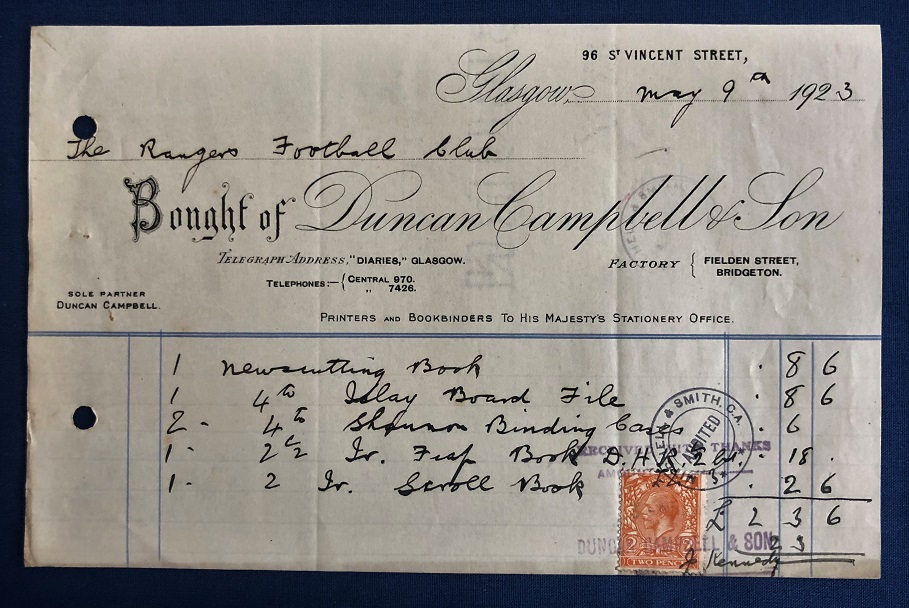 96 ST VINCENT STREET,
Glasgow, May 9th 1923
The Rangers Football Club
Bought of Duncan Campbell & Son
TELEGRAPH ADDRESS, "DIARIES," GLASGOW.
TELEPHONES:— { CENTRAL 970.
" 7426.
FACTORY { FIELDEN STREET,
BRIDGETON.
SOLE PARTNER
DUNCAN CAMPBELL.
PRINTERS AND BOOKBINDERS TO HIS MAJESTY'S STATIONERY OFFICE.
1 Newscutting Book . 8 6
1 4to Islay Board File . 8 6
2 - 4to Shannon Binding Cases . 6
1 - 2 Fcap Book . 18 .
1 - 2 Scroll Book . 2 6
£ 2 3 6
& SMITH, C.A.
RECEIVED WITH THANKS
TWO PENCE
DUNCAN CAMPBELL & SON
J Kennedy